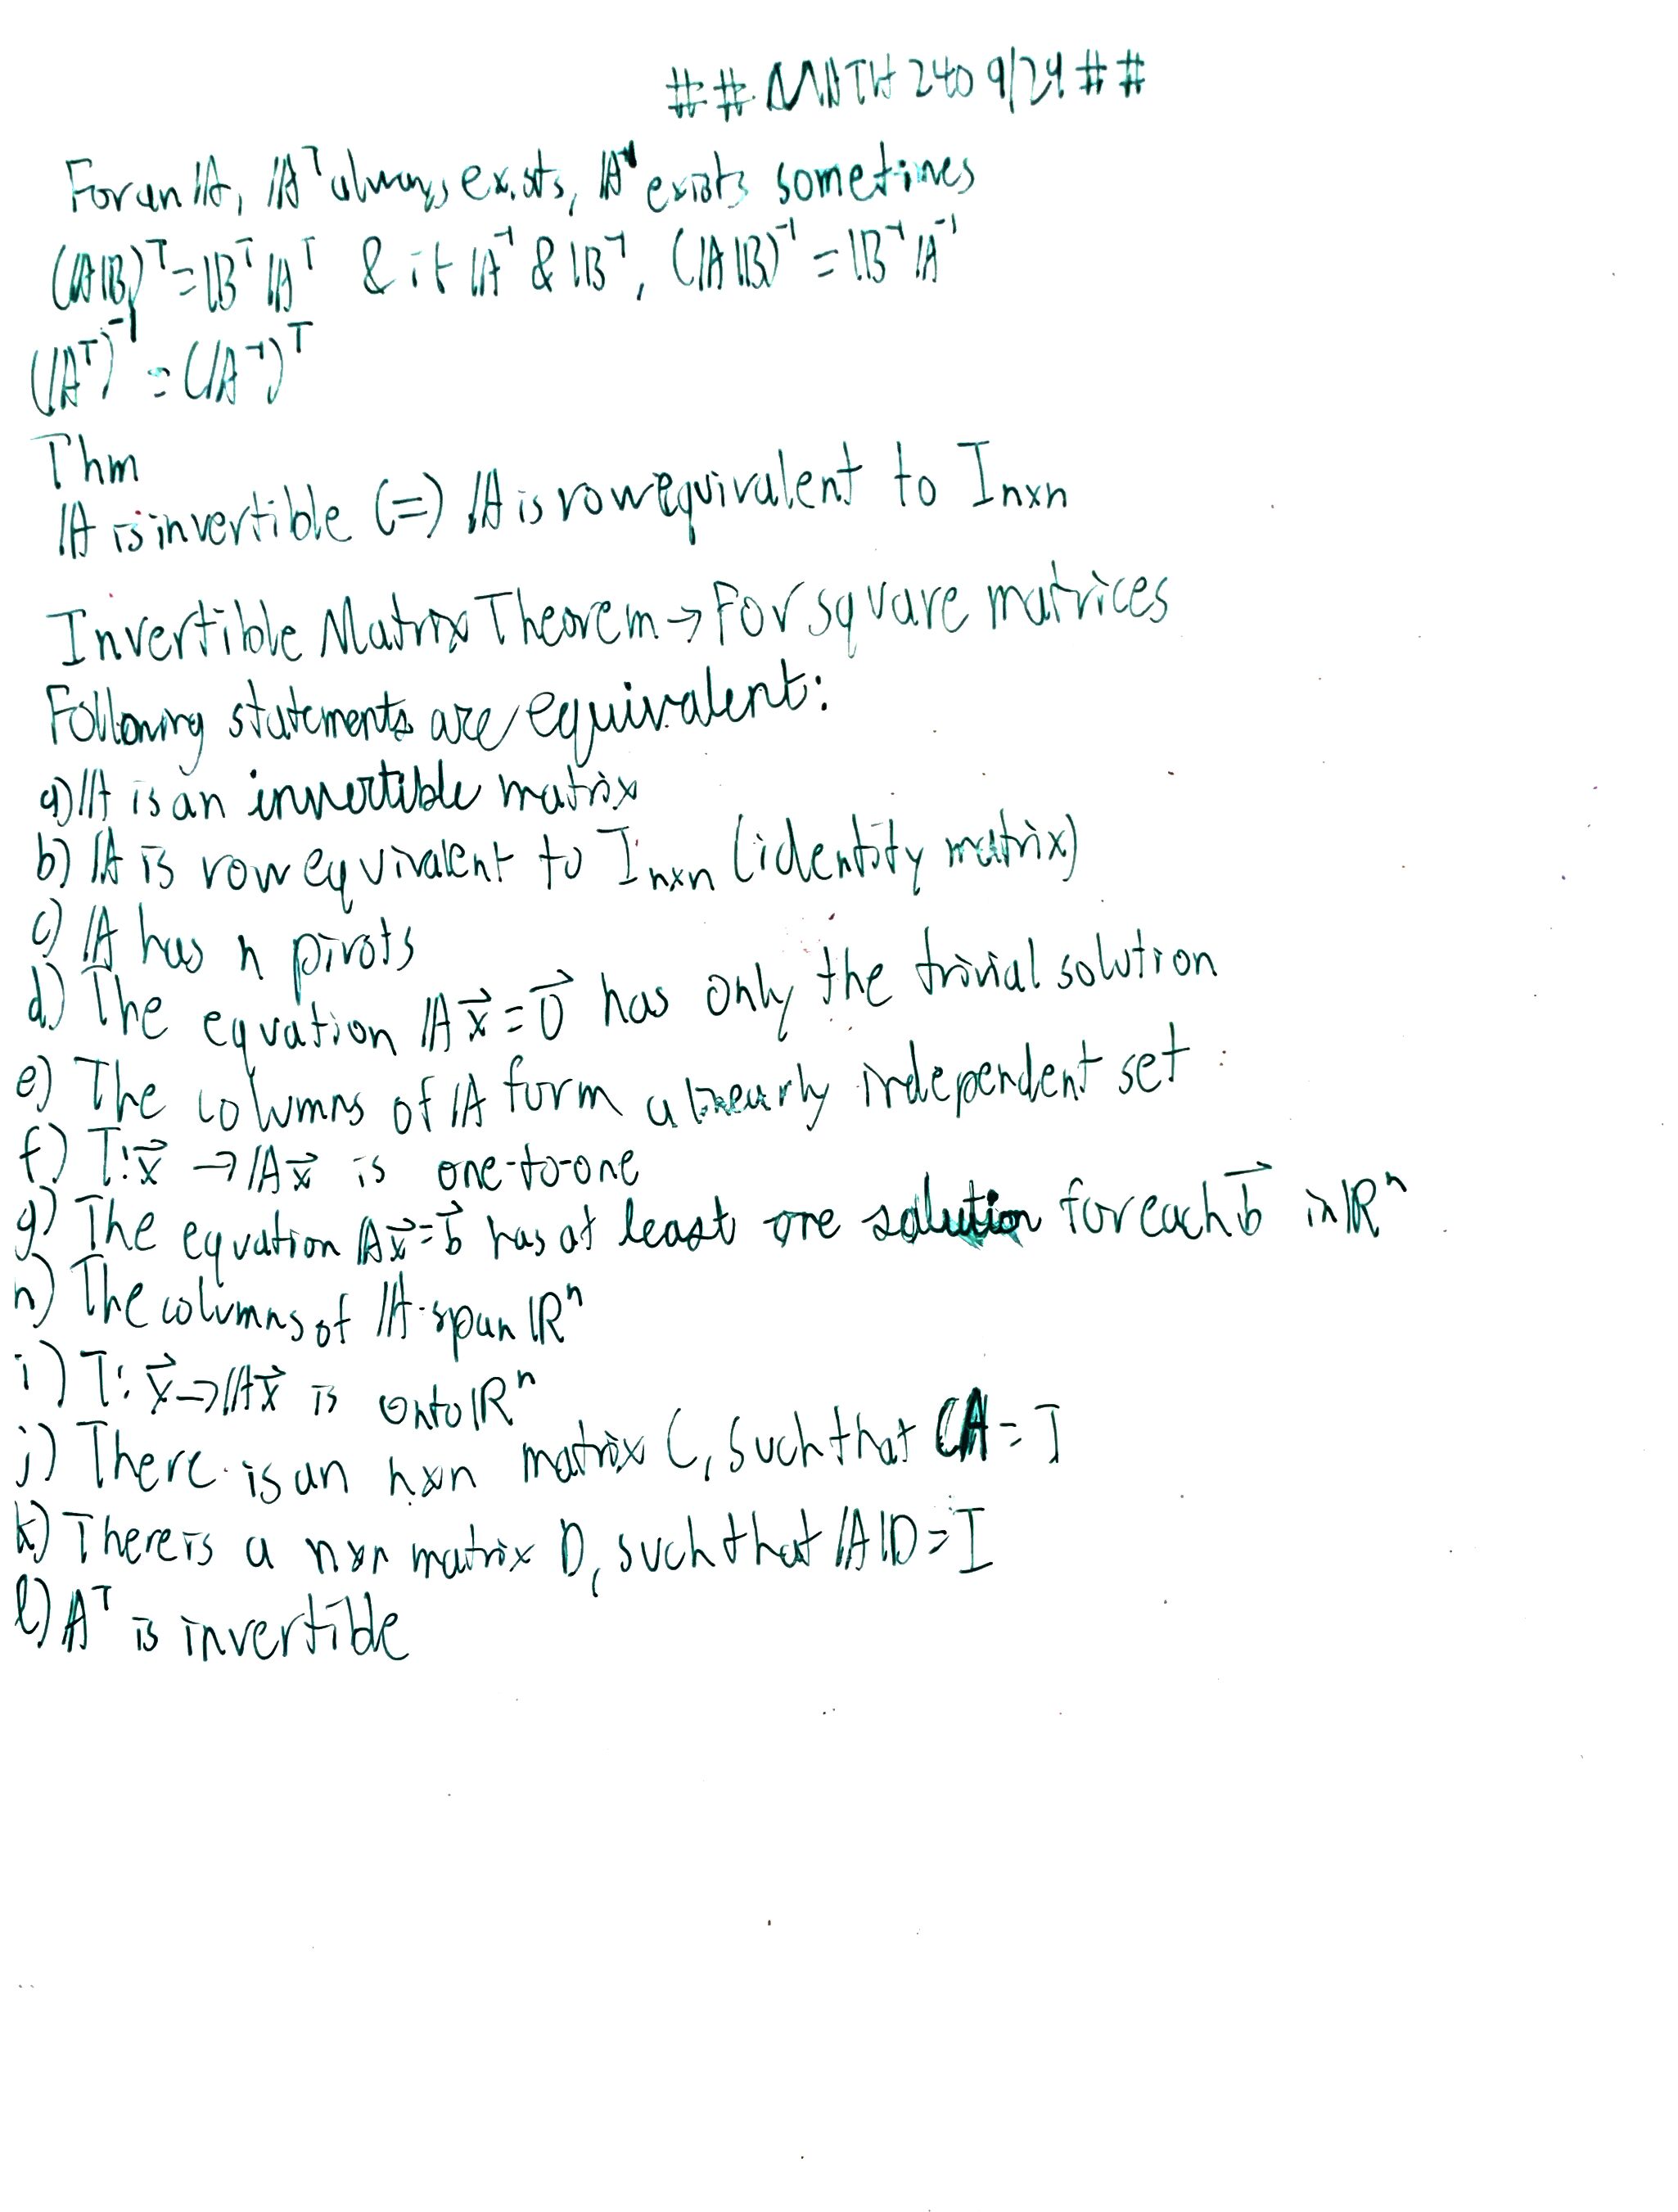 ## MATH 240 9/24 ##
For an 𝔸, 𝔸ᵀ always exists, 𝔸⁻¹ exists sometimes
(𝔸𝔹)ᵀ = 𝔹ᵀ𝔸ᵀ & if 𝔸⁻¹ & 𝔹⁻¹, (𝔸𝔹)⁻¹ = 𝔹⁻¹𝔸⁻¹
(𝔸ᵀ)⁻¹ = (𝔸⁻¹)ᵀ
Thm
𝔸 is invertible (=) 𝔸 is row equivalent to Inxn
Invertible Matrix Theorem → For square matrices
Following statements are equivalent:
a) 𝔸 is an invertible matrix
b) 𝔸 is row equivalent to Inxn (identity matrix)
c) 𝔸 has n pivots
d) The equation 𝔸x⃗ = 0⃗ has only the trivial solution
e) The columns of 𝔸 form a linearly independent set
f) T: x⃗ → 𝔸x⃗ is one-to-one
g) The equation 𝔸x⃗ = b⃗ has at least one solution for each b⃗ in ℝⁿ
h) The columns of 𝔸 span ℝⁿ
i) T: x⃗ → 𝔸x⃗ is onto ℝⁿ
j) There is an nxn matrix C, such that CA = I
k) There is a nxn matrix D, such that 𝔸𝔻 = I
l) Aᵀ is invertible